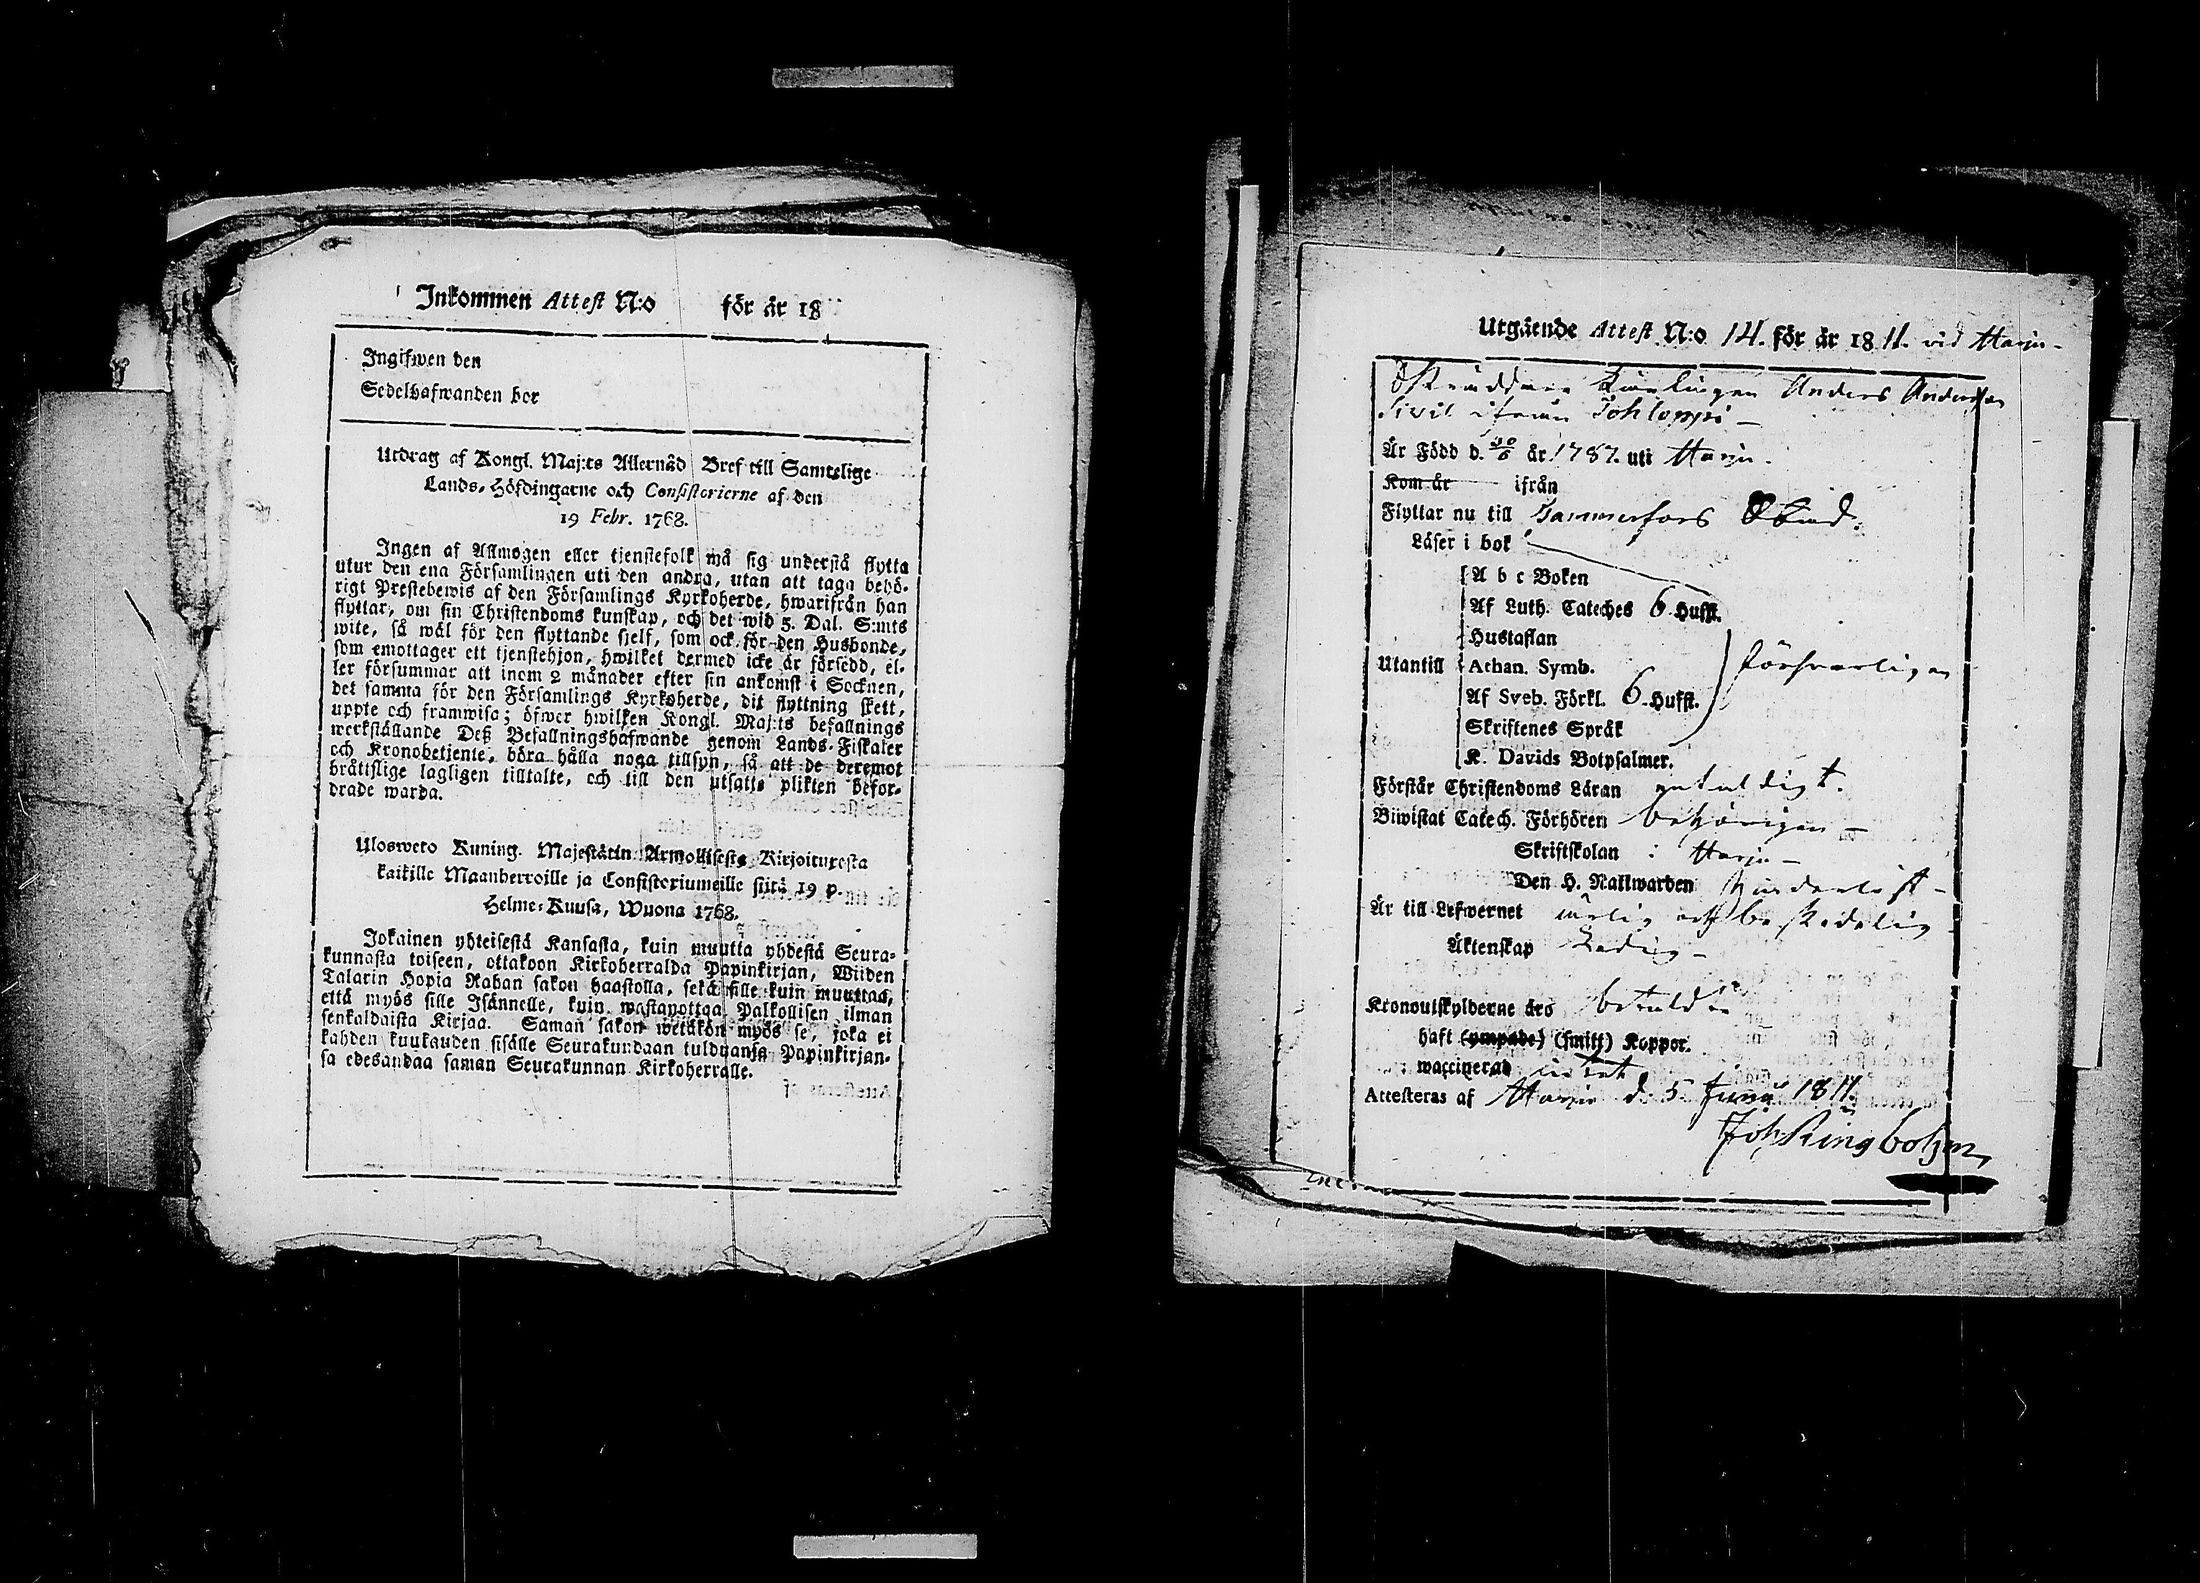 Inkommen Attest N:o för år 18
Ingifwen den
Sedelhafwanden bor
Utdrag af Kongl. Maj:ts Allernåd Bref till Samtelige
Lands-Höfdingarne och Consistorierne af den
19 Febr. 1768.
Ingen af Allmogen eller tjenstefolk må sig understå flytta
utur den ena Församlingen uti den andra, utan att taga behö-
rigt Prestebewis af den Församlings Kyrkoherde, hwarifrån han
flyttar, om sin Christendoms kunskap, och det wid 5. Dal. S:mts
wite, så wäl för den flyttande sjelf, som ock för den Husbonde,
som emottager ett tjenstehjon, hwilket dermed icke är försedd, el-
ler försummar att inom 2 månader efter sin ankomst i Socknen,
det samma för den Församlings Kyrkoherde, dit flyttning skett,
uppte och framwisa; öfwer hwilken Kongl. Maj:ts befallnings
werkställande Deß Befallningshafwande genom Lands-Fiskaler
och Kronobetjente, böra hålla noga tillsyn, så att de deremot
bråttslige lagligen tilltalte, och till den utsatte plikten befor-
drade warda.
Ulosweto Kuning. Majestätin Armollisesta Kirjoituxesta
kaikille Maanherroille ja Consistoriumeille siitä 19 p.
Helme-Kuusa, Wuona 1768.
Jokainen yhteisestä Kansasta, kuin muutta yhdestä Seura-
kunnasta toiseen, ottakoon Kirkoherralda Papinkirjan, Wiiden
Talarin Hopia Rahan sakon haastolla, sekä sille kuin muuttaa,
että myös sille Isännelle, kuin wastanottaa Palkollisen ilman
senkaldaista Kirjaa. Saman sakon wetäkön myös se, joka ei
kahden kuukauden sisälle Seurakundaan tulduansa Papinkirjan-
sa edesandaa saman Seurakunnan Kirkoherralle.
Utgående Attest N:o 14. för år 1811. vid Harju-
Skräddare Lärlingen Anders Andersson
Sivil ifrån Pohloppi -
Är Född d. 30/6 år 1787. uti Harju.
Kom år ifrån
Flyttar nu till Tammerfors Stad.
Läser i bok
A b c Boken
Af Luth. Cateches 6. Hufst.
Hustaflan
Utantill Athan. Symb. försvarligen
Af Sveb. Förkl. 6. Hufst.
Skriftenes Språk
K. Davids Botpsalmer.
Förstår Christendoms Läran
Biwistat Catech. Förhören behörigen -
Skriftskolan i Harju -
Den H. Nattwarden
Är till Lefwernet ärlig och beskedelig -
Äktenskap Ledig -
Kronoutskylderne äro betalde
haft (ympade) (smitt) Koppor.
waccinerad
Attesteras af Harju d. 5 Junii 1811.
Joh. Ringbohm